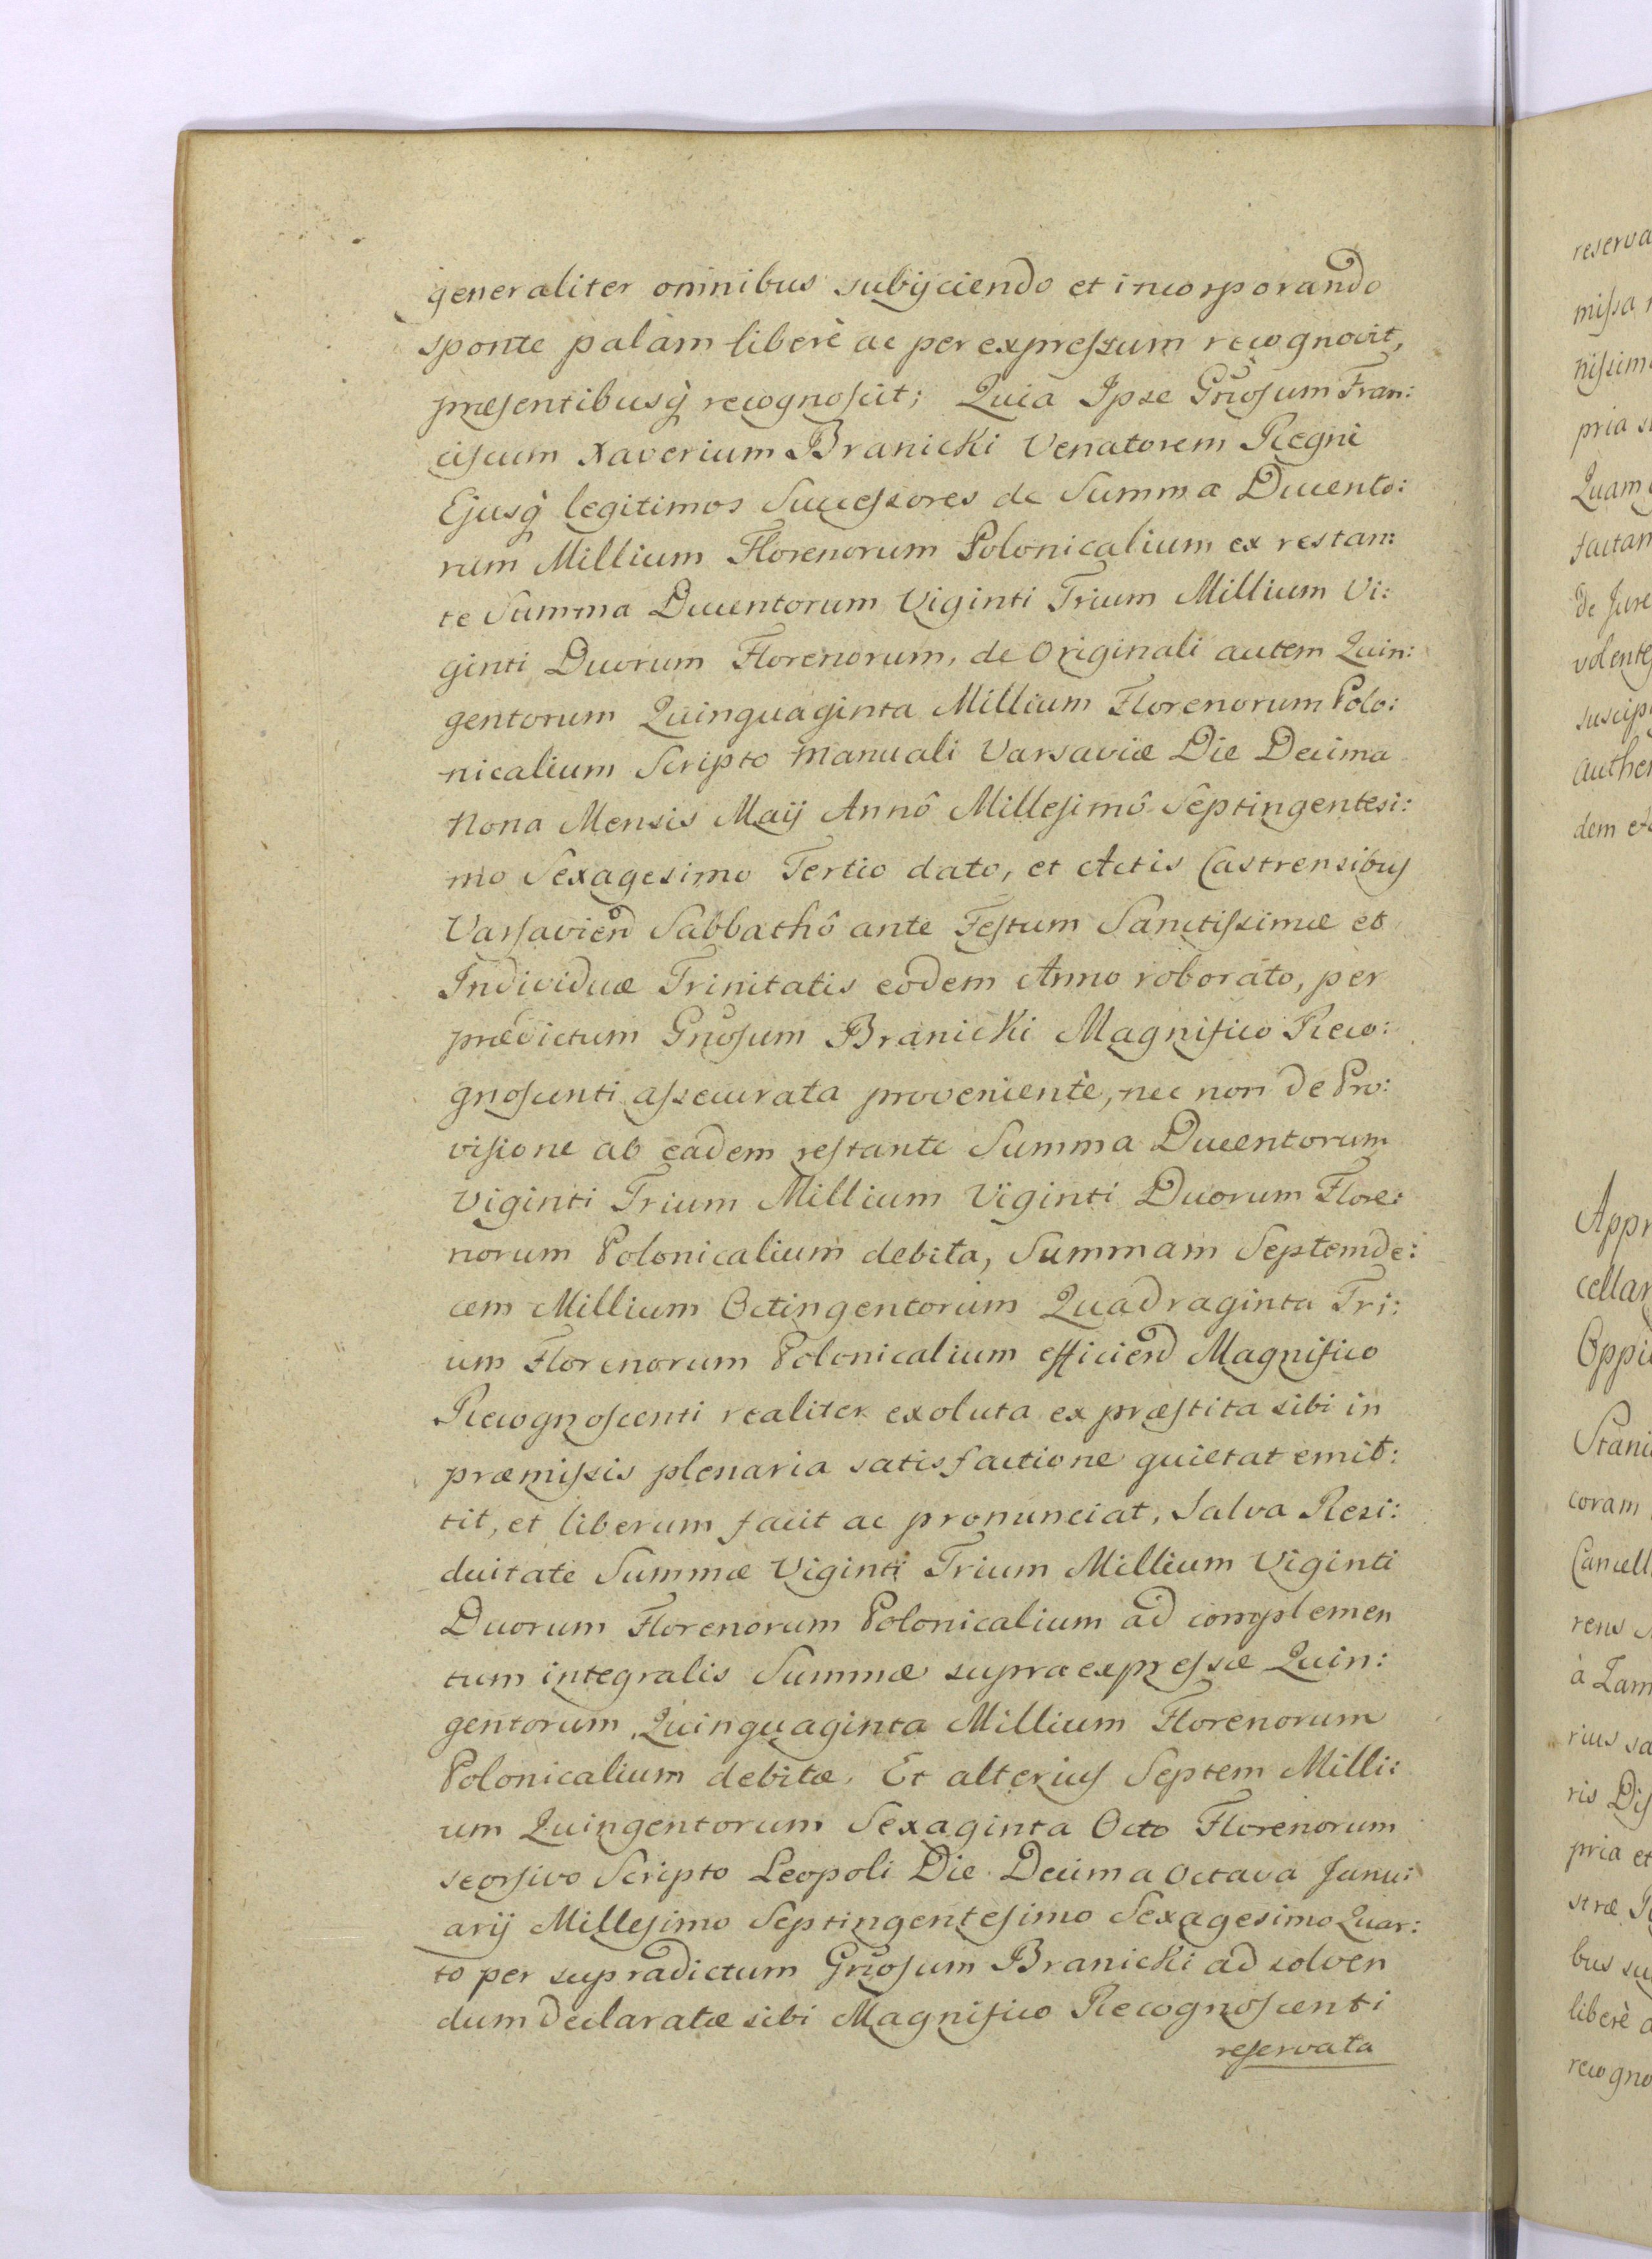 generaliter omnibus subijciendo et incorporando
sponte palàm liberè ac per expressum recognovit,
præsentibusq̀ recognoscit; Quia Ipse Gnosum Fran:
ciscum Xaverium Branicki Venatorem Regni
Ejusq̀ legitimos Successores de Summa Ducento:
rum Millium Florenorum Polonicalium ex restan:
te Summa Ducentorum Viginti Trium Millium Vi:
ginti Duorum Florenorum, de Originali autem Quin:
gentorum Quinquaginta Millium Florenorum Polo:
nicalium Scripto Manuali Varsaviæ Die Decima
Nona Mensis Maij Annô Millesimô Septingentesi:
mo Sexagesimo Tertio dato, et Actis Castrensibus
Varsavien̄ Sabbathô ante Festum Sanctissimæ et
Individuæ Trinitatis eodem Anno roborato, per
prædictum Gnosum Branicki Magnifico Reco:
gnoscenti assecurata proveniente, nec non de Pro:
visione ab eadem restante Summa Ducentorum
Viginti Trium Millium Viginti Duorum Flore:
norum Polonicalium debita, Summam Septemde:
cem Millium Octingentorum Quadraginta Tri:
um Florenorum Polonicalium efficiend Magnifico
Recognoscenti realiter exoluta ex præstita sibi in
præmissis plenaria satisfactione quietat emit:
tit, et liberum facit ac pronunciat, Salva Resi:
duitate Summæ Viginti Trium Millium Viginti
Duorum Florenorum Polonicalium ad complemen
tum integralis Summæ supra expressæ Quin:
gentorum Quinquaginta Millium Florenorum
Polonicalium debitæ. Et alterius Septem Milli:
um Quingentorum Sexaginta Octo Florenorum
seorsivo Scripto Leopoli Die Decima Octava Janu:
arij Millesimo Septingentesimo Sexagesimo Quar:
to per supradictum Gnosum Branicki ad solven
dum declaratæ sibi Magnifico Recognoscenti
reservata
reserva
missa
nissim
pria
Quam
factam
de Jure
volente
suscip
authen
dem
Appr
cellar
Oppi
Stani
coram
Cancell
rens
à Zam
rius sa
ris Dis
pria et
stræ
bus su
liberè
recogno